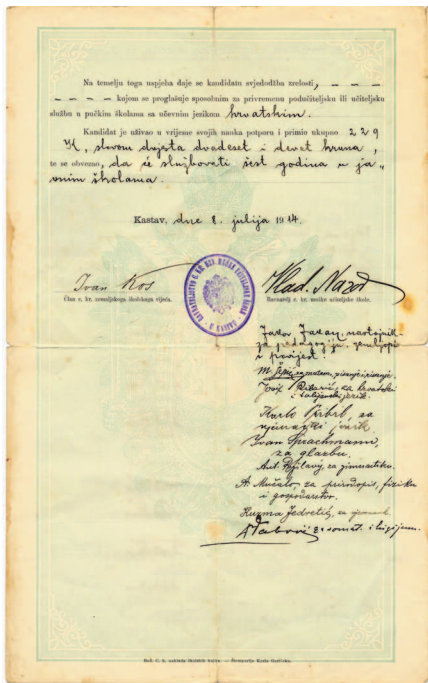 Na temelju toga uspjeha daje se kandidatu svjedodžba zrelosti, – – –
– – – – kojom se proglašuje sposobnim za privremenu podučiteljsku ili učiteljsku
službu u pučkim školama sa učevnim jezikom hrvatskim.
Kandidat je uživao u vrijeme svojih nauka potporu i primio ukupno 229
K, slovom dvjesta dvadeset i devet kruna,
te se obvezao, da će službovati šest godina u ja„
vnim školama.
Kastav, dne 8. julija 1914.
Ivan Kos
Vlad. Nazor
Član c. kr. zemaljskoga školskoga vijeća.
Ravnatelj c. kr. muške učiteljske škole.
nastojnik
za pedagogiju, zemljopis
i povijest
M. Šepić, za matem. pisanje i risanje.
Josip Ribarić, za hrvatski
i talijanski jezik.
Karlo za
njemački jezik
Ivan Sprachmann,
za glazbu.
Ant. za gimnastiku.
A. Mučalo, za prirodopis, fiziku
i gospodarstvo.
Kuzma Jedretić, za
za somat. i higijenu.